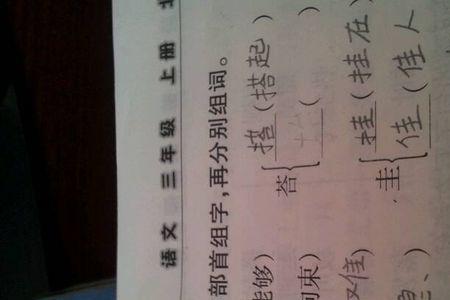 语文 三年级 上册
部首组字,再分别组词。
能够) 搭(搭起)
荅
束) (
难) 挂(挂在)
圭
佳(佳人